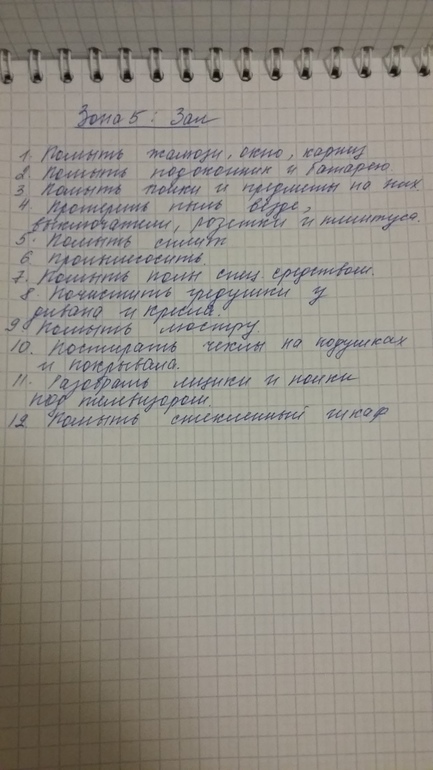 Зона 5: Зал
1. Помыть жалюзи, окно, карниз
2. Помыть подоконник и батарею
3. Помыть полки и предметы на них
4. Протереть пыль везде,
выключатели, розетки и плинтуса.
5. Помыть сплит
6 Пропылесосить
7. Помыть полы спец. средством.
8 Почистить грядушки у
дивана и кресла.
9 Помыть люстру.
10. Постирать чехлы на подушках
и покрывала.
11. Разобрать ящики и полки
под телевизором.
12. Помыть стеклянный шкаф